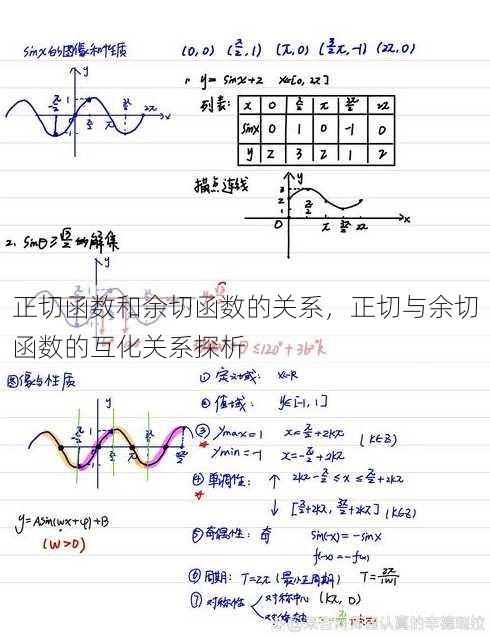 sinx的图像和性质
(0,0) (π/2,1) (π,0) (3/2π,-1) (2π,0)
1. y=sinx+2 x∈[0,2π]
列表:
x 0 π/2 π 3π/2 2π
sinx 0 1 0 -1 0
y 2 3 2 1 2
描点连线
2. sinθ≥√3/2 的解集
正切函数和余切函数的关系，正切与余切
函数的互化关系探析
≤120°+360°k
图像与性质
① 定义域: x∈R
② 值域: y∈[-1,1]
③ ymax=1 x=π/2+2kπ
ymin=-1 x=-π/2+2kπ
(k∈Z)
④ 单调性: ↑ 2kπ-π/2≤x≤π/2+2kπ
↓ [π/2+2kπ, 3π/2+2kπ] (k∈Z)
y=Asin(wx+φ)+B
(w>0)
⑤ 奇偶性: 奇 sin(-x)=-sinx
f(-x)=-f(x)
⑥ 周期: T=2π (最小正周期) T=2π/|w|
⑦ 对称性 对称中心 (kπ,0)
对称轴